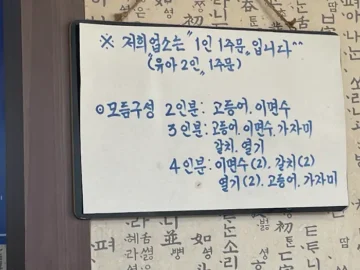 ※ 저희업소는 "1인 1주문" 입니다~~
(유아 2인" 1주문)
⊙모듬구성 2인분: 고등어. 이면수
3인분: 고등어. 이면수. 가자미
갈치. 열기
4인분: 이면수(2). 갈치(2)
열기(2). 고등어. 가자미